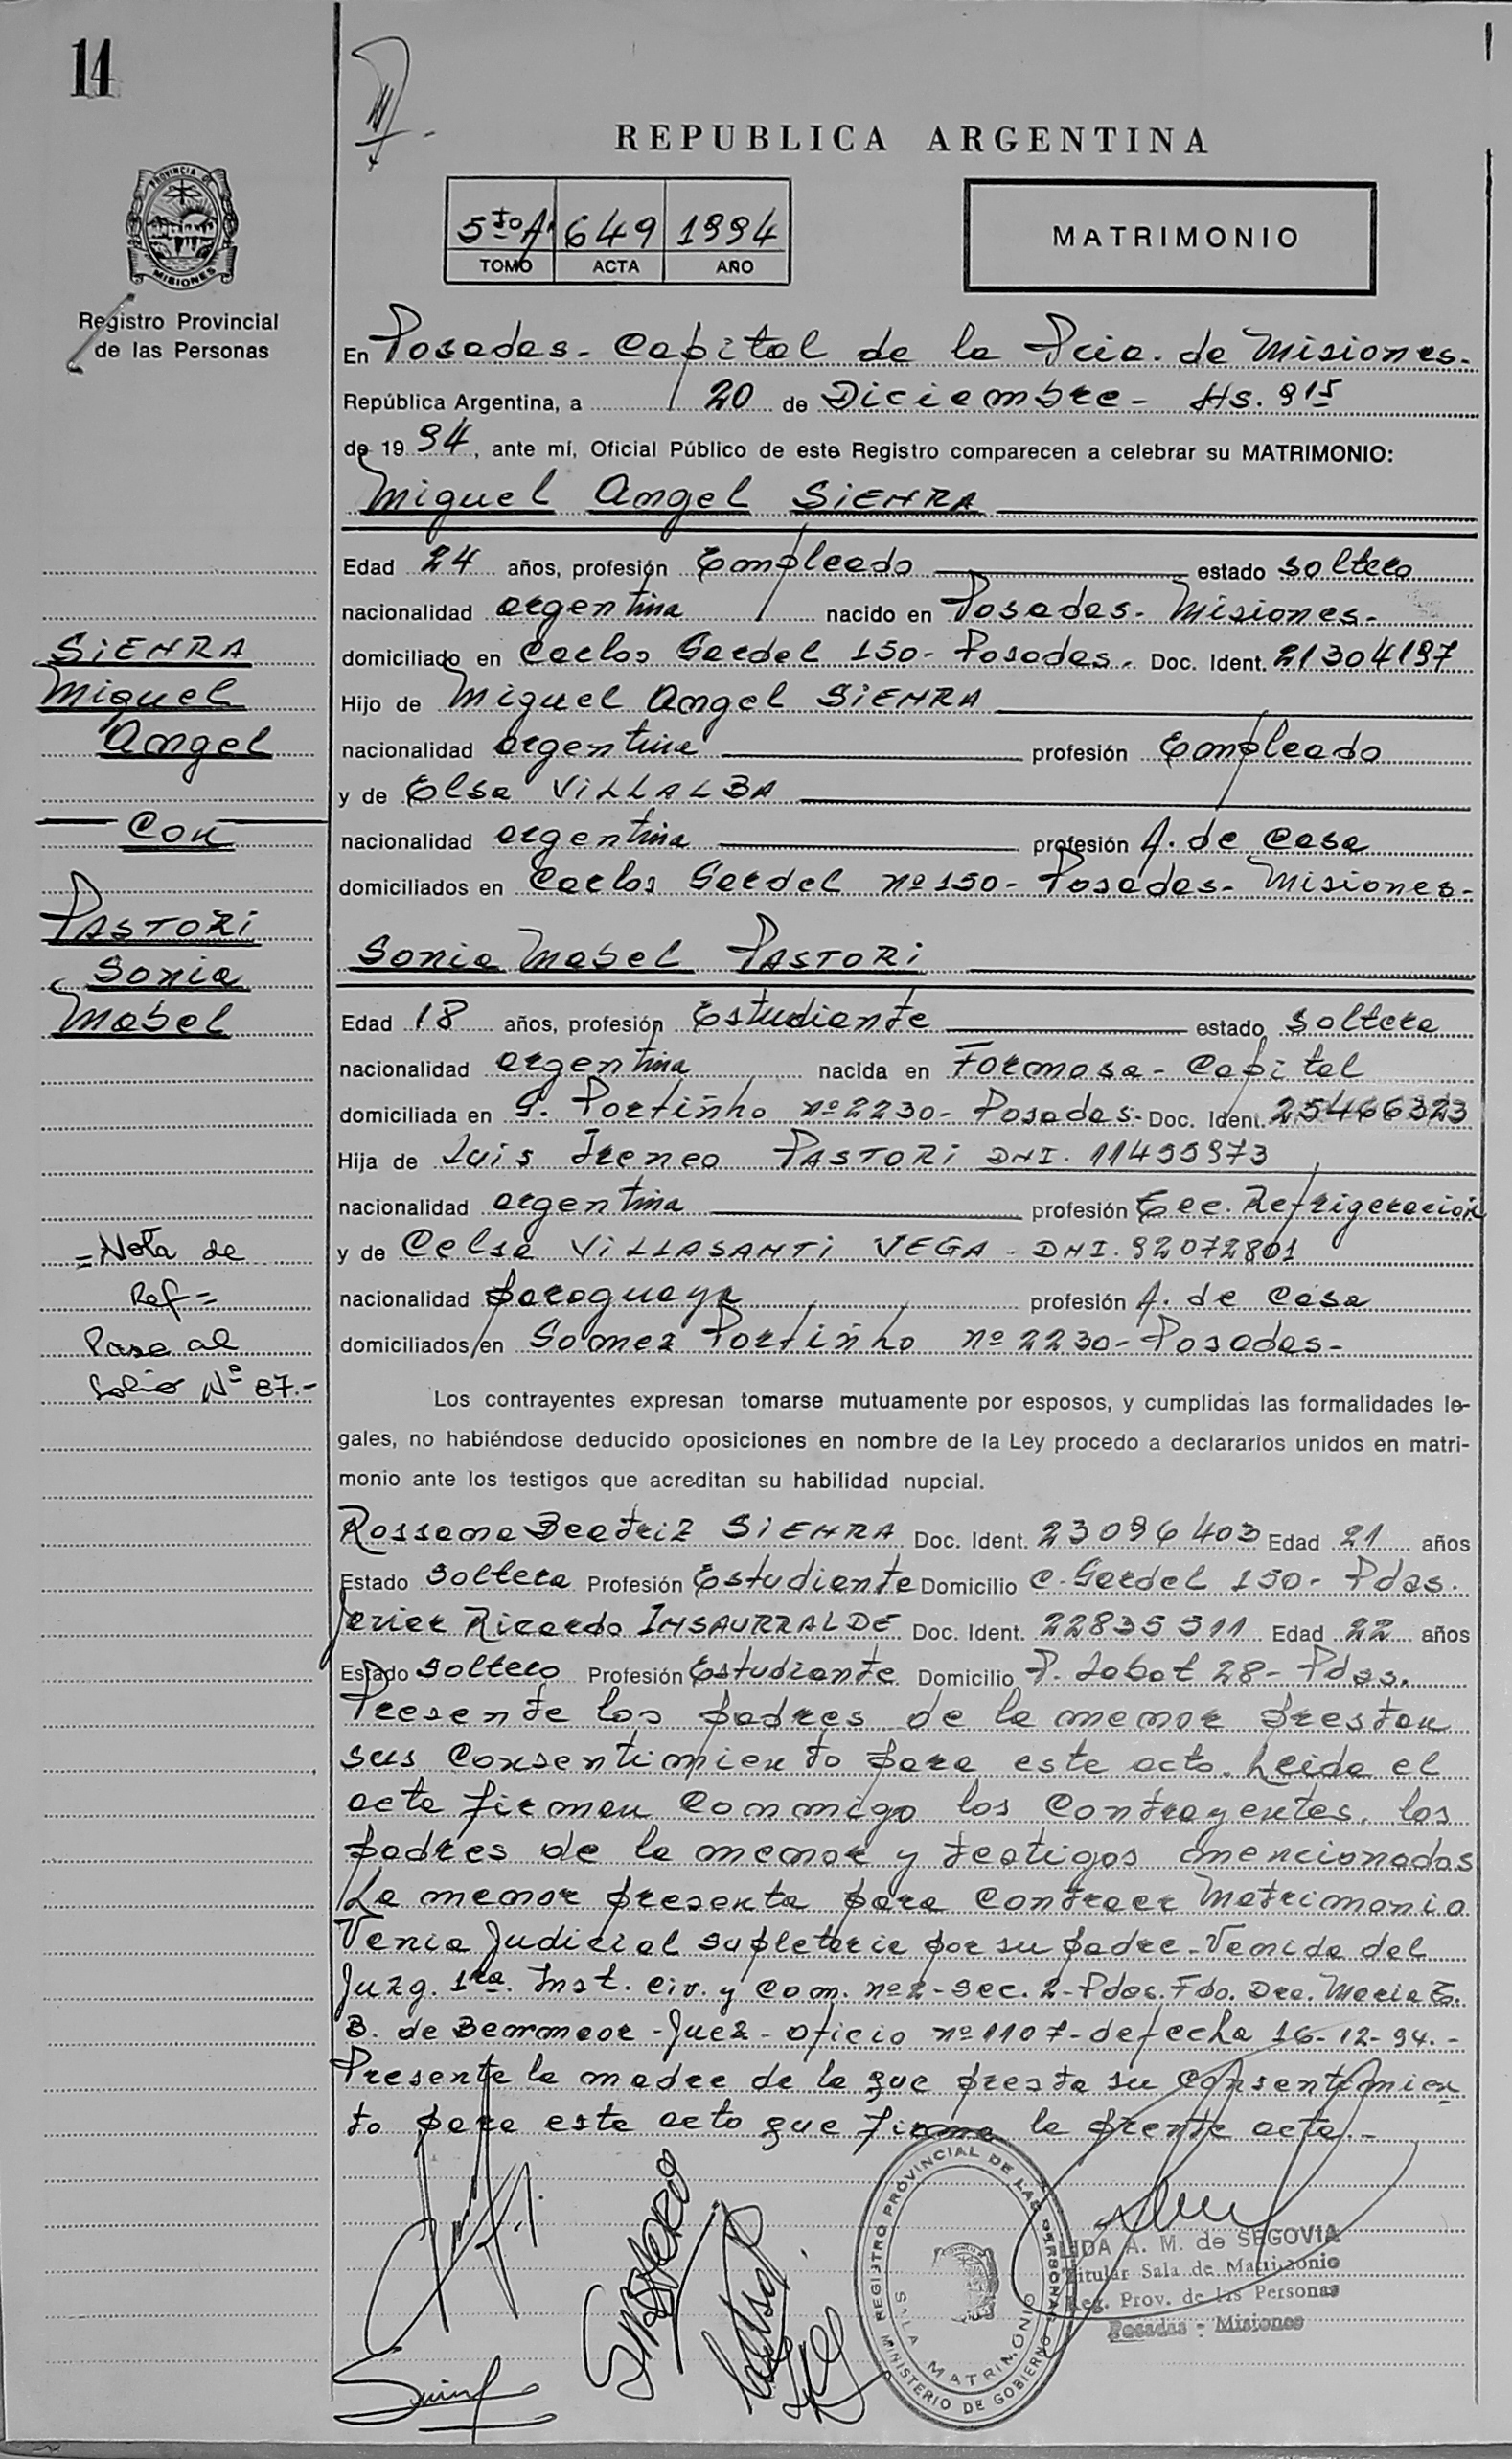 14
REPUBLICA ARGENTINA
5to A. 649 1994
TOMO ACTA AÑO
MATRIMONIO
PROVINCIA DE
MISIONES
Registro Provincial
de las Personas
En Posadas - Capital de la Pcia. de Misiones.
República Argentina, a 20 de Diciembre - Hs. 9 15
de 19 94, ante mí, Oficial Público de este Registro comparecen a celebrar su MATRIMONIO:
Miguel Angel SiENRA
Edad 24 años, profesión Empleado estado soltero
nacionalidad argentina nacido en Posadas - Misiones -
domiciliado en Carlos Gardel 150 - Posadas. Doc. Ident. 21304197
Hijo de Miguel Angel SiENRA
nacionalidad argentina profesión Empleado
y de Elsa ViLLALBA
nacionalidad argentina profesión A. de Casa
domiciliados en Carlos Gardel nº 150 - Posadas - Misiones -
Sonia Mabel PASTORi
Edad 18 años, profesión Estudiante estado soltera
nacionalidad argentina nacida en Formosa - Capital
domiciliada en G. Portiñho nº 2230 - Posadas - Doc. Ident. 25466323
Hija de Luis Ireneo PASTORi DNI. 11499973
nacionalidad argentina profesión Tec. Refrigeración
y de Celsa ViLLASANTi VEGA - DNI. 92072801
nacionalidad paraguaya profesión A. de Casa
domiciliados en Gomez Portiñho nº 2230 - Posadas -
SiENRA
Miguel
Angel
Con
PASTORi
Sonia
Mabel
= Nota de
Ref =
Pasa al
folio Nº 87.-
Los contrayentes expresan tomarse mutuamente por esposos, y cumplidas las formalidades le-
gales, no habiéndose deducido oposiciones en nombre de la Ley procedo a declararlos unidos en matri-
monio ante los testigos que acreditan su habilidad nupcial.
Rossana Beatriz SiENRA Doc. Ident. 23096403 Edad 21 años
Estado Soltera Profesión Estudiante Domicilio C. Gardel 150 - Pdas.
Javier Ricardo INSAURRALDE Doc. Ident. 22835911 Edad 22 años
Estado soltero Profesión Estudiante Domicilio P. 28 - Pdas.
Presente los padres de la menor prestan
sus consentimiento para este acto. Leida el
acta firman conmigo los contrayentes, los
padres de la menor y testigos mencionados
La menor presenta para contraer Matrimonio
Venia Judicial supletoria por su padre - Venida del
Juzg. 1ra. Inst. Civ. y Com. nº 2 - Sec. 2 - Pdas. Fdo. Dra. Maria E.
B. de - Juez - Oficio nº 1107 - de fecha 16-12-94. -
Presente la madre de la que presta su consentimien
to para este acto que firma la prente acta. -
REGISTRO PROVINCIAL DE LAS PERSONAS
SALA MATRIMONIO
MINISTERIO DE GOBIERNO
LIDA A. M. de SEGOVIA
Titular Sala de Matrimonio
Reg. Prov. de las Personas
Posadas - Misiones